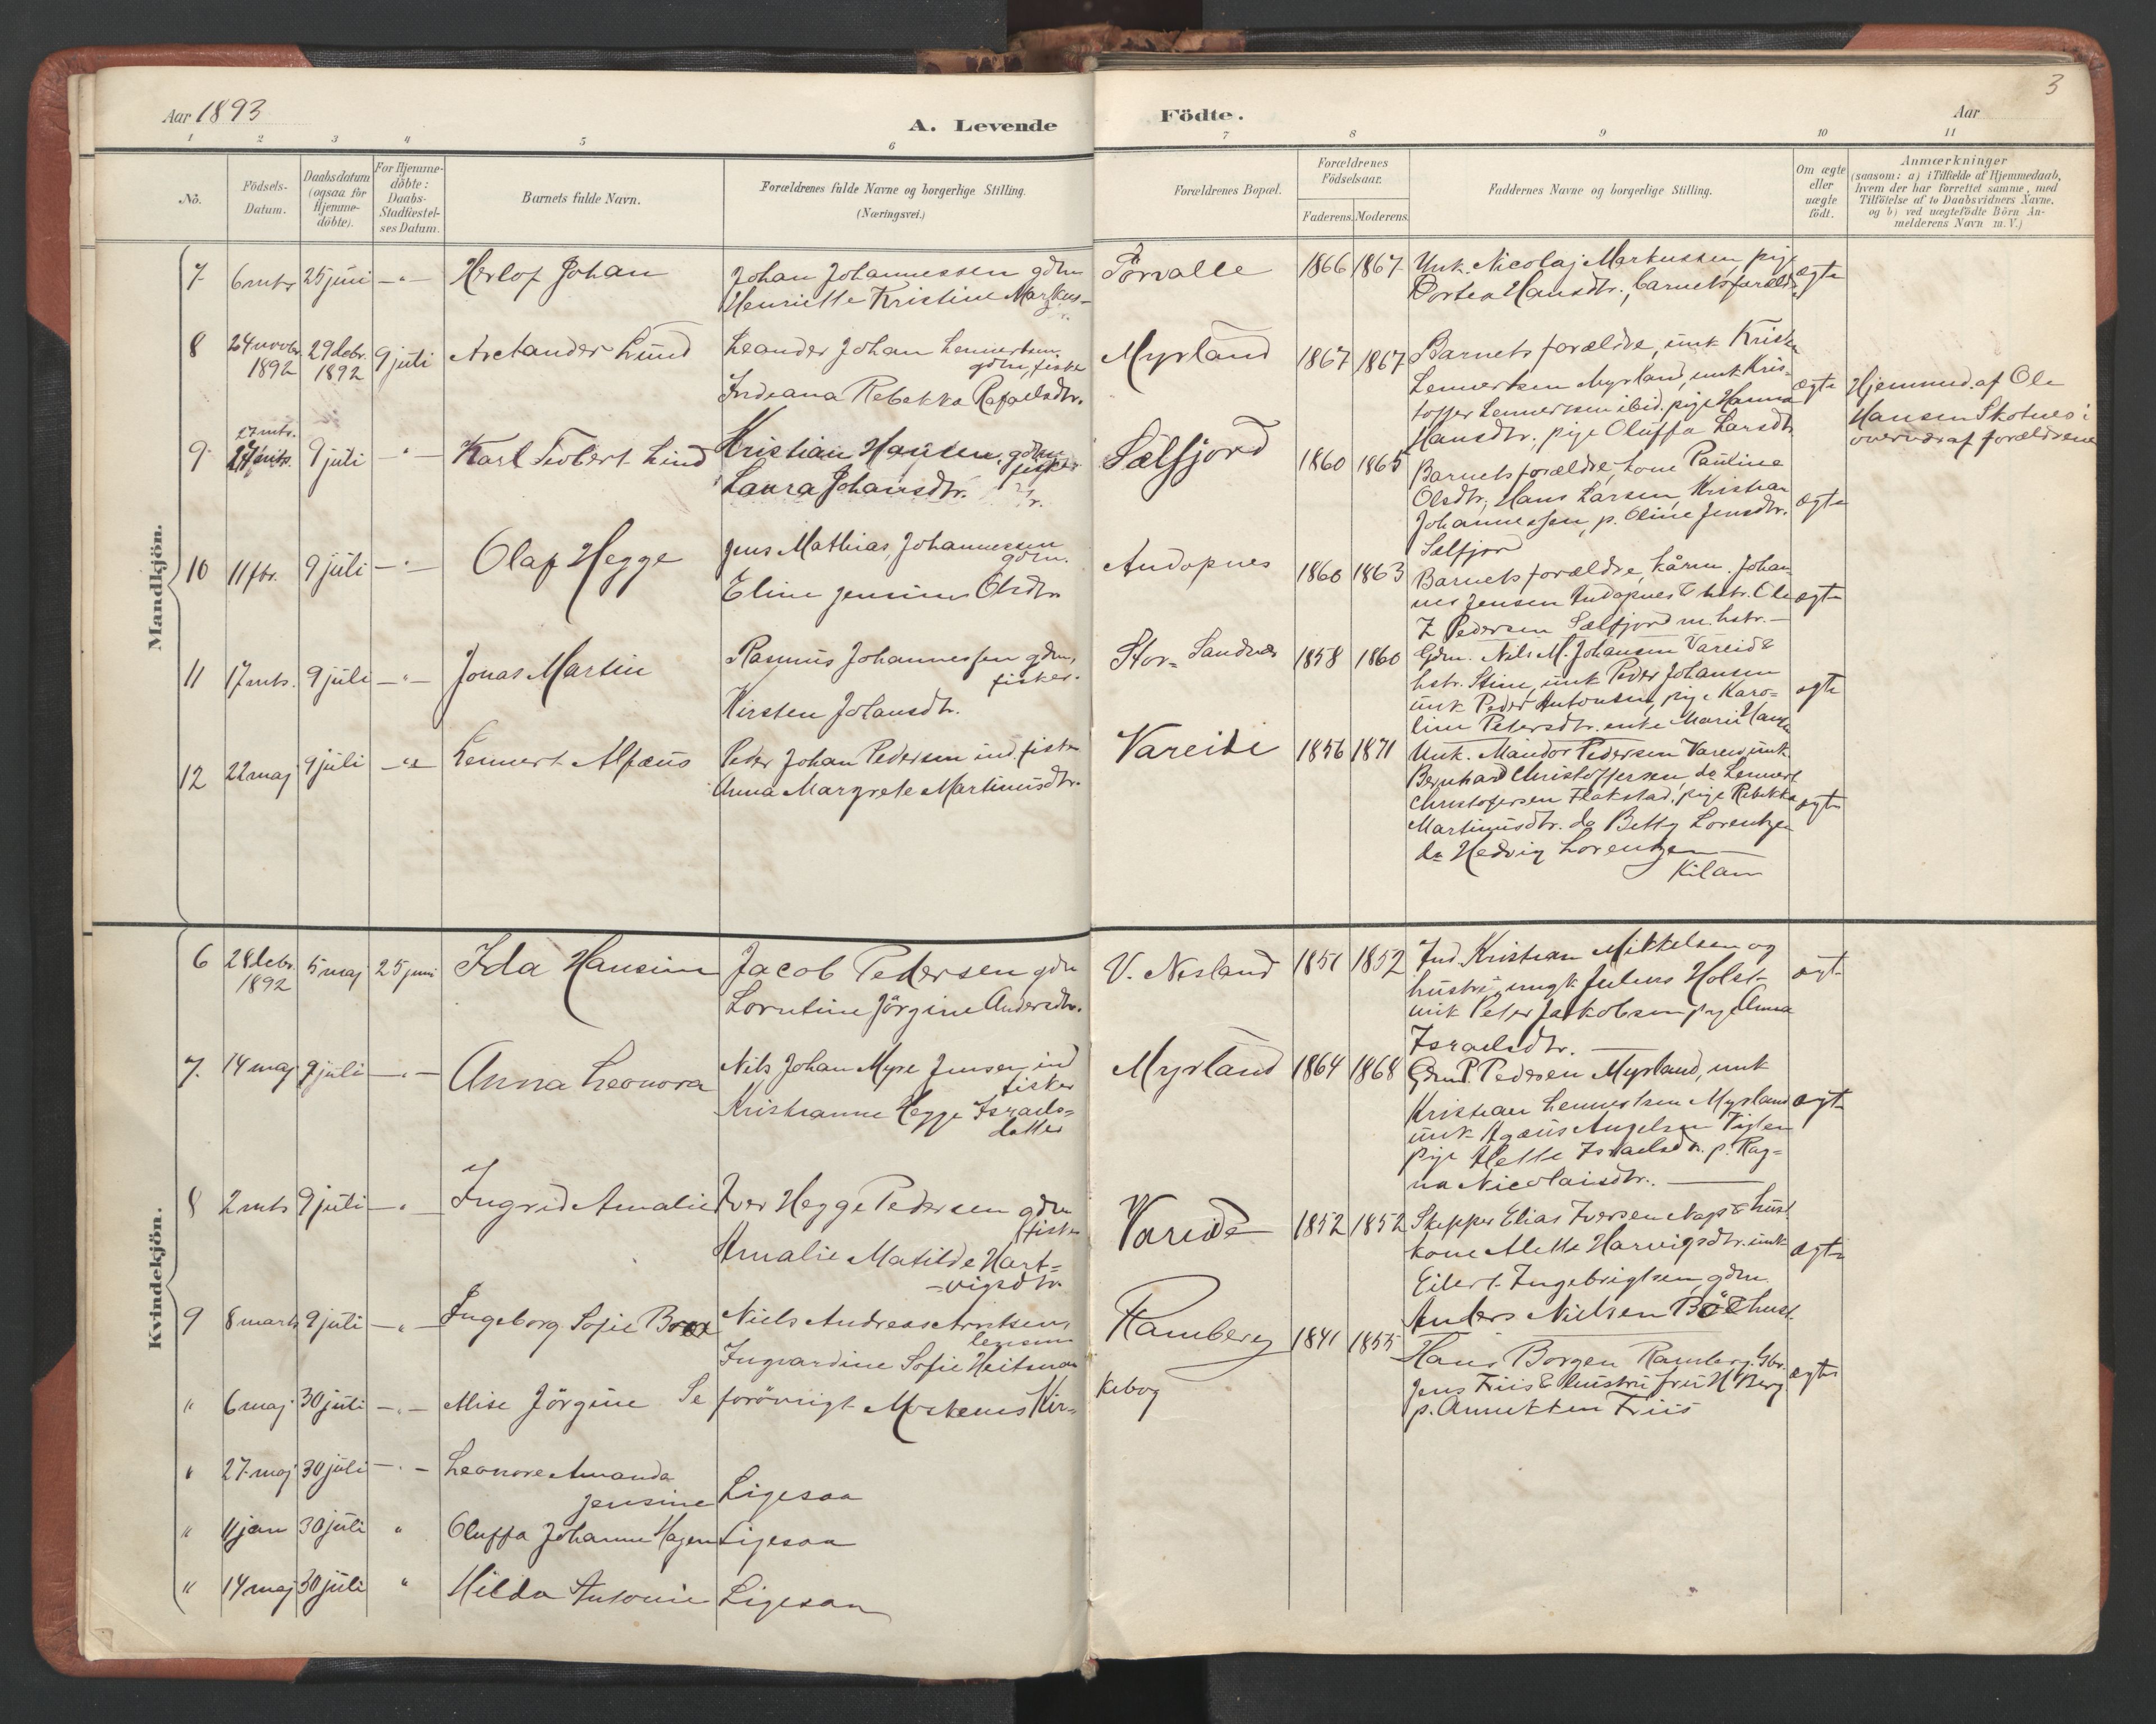 Aar 1893
A. Levende
Födte.
Aar
3
1 2 3 4 5 6 7 8 9 10 11
No.
Födsels-Datum.
Daabsdatum (ogsaa for Hjemme-döbte).
For Hjemme-döbte: Daabs-Stadfæstel-ses Datum.
Barnets fulde Navn.
Forældrenes fulde Navne og borgerlige Stilling.
(Næringsvei.)
Forældrenes Bopæl.
Forældrenes Födselsaar.
Faderens. Moderens.
Faddernes Navne og borgerlige Stilling.
Om ægte eller uægte födt.
Anmærkninger
(saasom: a) i Tilfælde af Hjemmedaab,
hvem der har forrettet samme, med
Tilföielse af to Daabsvidners Navne,
og b) ved uægtefödte Börn An-
melderens Navn m. V.)
Mandkjön.
7 6 mts 25 juni -"- Herlof Johan
Johan Johannessen gdm
Henriette Kristine Markus-
Törvalle 1866 1867
Unk. Nicolaj Markussen, pige
Dortea Hansdtr., barnets foræld. ægte
8 24 novbr. 1892 29 debr. 1892 9 juli Arctander Lund
Leander Johan Lennertsen
gdm, fisker
Indeana Rebekka Rafaelsdtr.
Myrland 1867 1867
Barnets forældre, unk Kristian
Lennertsen Myrland, unk Kris-
toffer Lennertsen ibid. pige Hanna
Hansdtr., pige Oluffa Larsdtr ægte
Hjemmed. af Ole
Hansen Skotnes i
overvær af forældrene
9 27 mts. 9 juli -"- Karl Teobert Lind
Kristian Hansen, gdm
fisker
Laura Johansdtr.
Sælfjord 1860 1865
Barnets forældre, kone Pauline
Olsdtr, Hans Larsen, Kristian
Johannessen, p. Oline Jensdtr.
Sælfjor ægte
10 11 fbr. 9 juli -"- Olaf Hegge
Jens Mathias Johannessen
gdm.
Eline Jensine Olsdtr
Andopnes 1860 1863
Barnets forældre, kårm. Johan
nes Jensen Andopnes & hstr. Ole
Z Pedersen Sælfjord m. hstr. — ægte
11 17 mts. 9 juli -"- Jonas Martin
Rasmus Johannessen gdm,
fisker.
Kirsten Johansdtr.
Stor-Sandnes 1858 1860
Gdm. Nils M. Johansen Vareid &
hstr. Stine, unk Peder Johansen
unk Peder Antonsen, pige Karo-
line Petersdtr. enke Marie Hans ægte
12 22 maj 9 juli -"- Lennert Alfæus
Peder Johan Pedersen ind. fisker
Anna Margrete Martinusdtr.
Vareide 1856 1871
Unk. Mandor Pedersen Vareid unk
Bernhard Christoffersen do Lennert
Christofersen Flakstad, pige Rebekka
Martinusdtr. do Betty Lorentzen
do Hedvig Lorentzen
Kilan ægte
Kvindekjön.
6 28 debr. 1892 5 maj 25 juni Ida Hansine
Jacob Pedersen gdm
Lorntine Jörgine Andersdtr.
V. Nesland 1851 1852
Ind Kristian Mikkelsen og
hustr, ungk Julius Holst
unk Peter Jakobsen pige Anna
Israelsdtr. — ægt
7. 14 maj 9 juli -"- Anna Leonora
Nils Johan Myre Jensen ind
fisker
Kristianne Hegge Israels-
datter
Myrland 1864 1868
Gdm P. Pedersen Myrland, unk
Kristian Lennertsen Myrland
unk Agæus Angelsen Viglen
pige Mette Israelsdtr. p. Rag-
na Nicolaisdtr. — ægt
8 2 mts 9 juli -"- Ingrid Amalie
Iver Hegge Pedersen gdm
fisker
Amalie Matilde Hart-
-vigsdtr
Vareide 1852 1852
Skipper Elias Iversen Naps & hust.
kone Mette Harvigsdtr. unk
Eilert Ingebrigtsen gdm.
Anders Nielsen Böe & hust. ægte
9 8 marts 9 juli -"- Ingeborg Sofie Brox
Niels Andreas Arntsen,
lensm
Ingvardine Sofie Heitman
Ramberg 1841 1855
Hans Borgen Ramberg, Gbr.
Jens Friis & hustru fru H Berg
p. Annekken Friis ægte
" 6 maj 30 juli -"- Mise Jörgine Se forövrigt Moskenes Kir-
kebog
" 27 maj 30 juli -"- Leonore Amanda
Jensine Ligesaa
" 11 jan 30 juli " Oluffa Johanne Hagen Ligesaa
" 14 maj 30 juli " Hilda Antonie Ligesaa